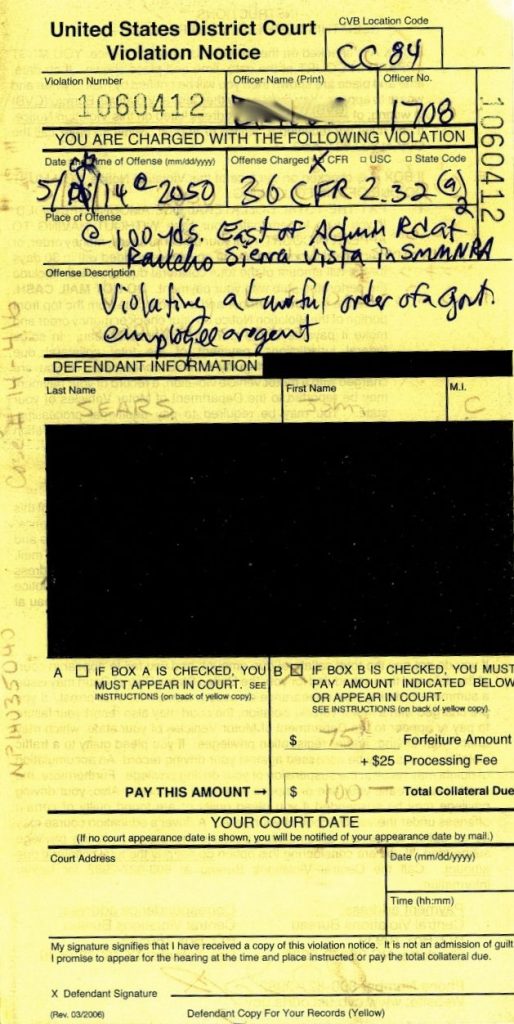 United States District Court
Violation Notice
CVB Location Code
CC 84
Violation Number
1060412
Officer Name (Print)
Officer No.
1708
1060412
YOU ARE CHARGED WITH THE FOLLOWING VIOLATION
Date and Time of Offense (mm/dd/yyyy)
5/ /14 @ 2050
Offense Charged CFR □ USC □ State Code
36 CFR 2.32 (a) 2
Place of Offense
@ 100 yds. East of Admin Rd at
Rancho Sierra Vista in SMMNRA
Offense Description
Violating a Lawful order of a Govt.
employee or agent
DEFENDANT INFORMATION
Last Name
SEARS
First Name
Sam
M.I.
C
Case # 14-416
NP14035040
A □ IF BOX A IS CHECKED, YOU
MUST APPEAR IN COURT. SEE
INSTRUCTIONS (on back of yellow copy).
B ☒ IF BOX B IS CHECKED, YOU MUST
PAY AMOUNT INDICATED BELOW
OR APPEAR IN COURT.
SEE INSTRUCTIONS (on back of yellow copy).
$ 75 Forfeiture Amount
+ $25 Processing Fee
PAY THIS AMOUNT → $ 100 — Total Collateral Due
YOUR COURT DATE
(If no court appearance date is shown, you will be notified of your appearance date by mail.)
Court Address
Date (mm/dd/yyyy)
Time (hh:mm)
My signature signifies that I have received a copy of this violation notice. It is not an admission of guilt
I promise to appear for the hearing at the time and place instructed or pay the total collateral due.
X Defendant Signature
(Rev. 03/2006)
Defendant Copy For Your Records (Yellow)